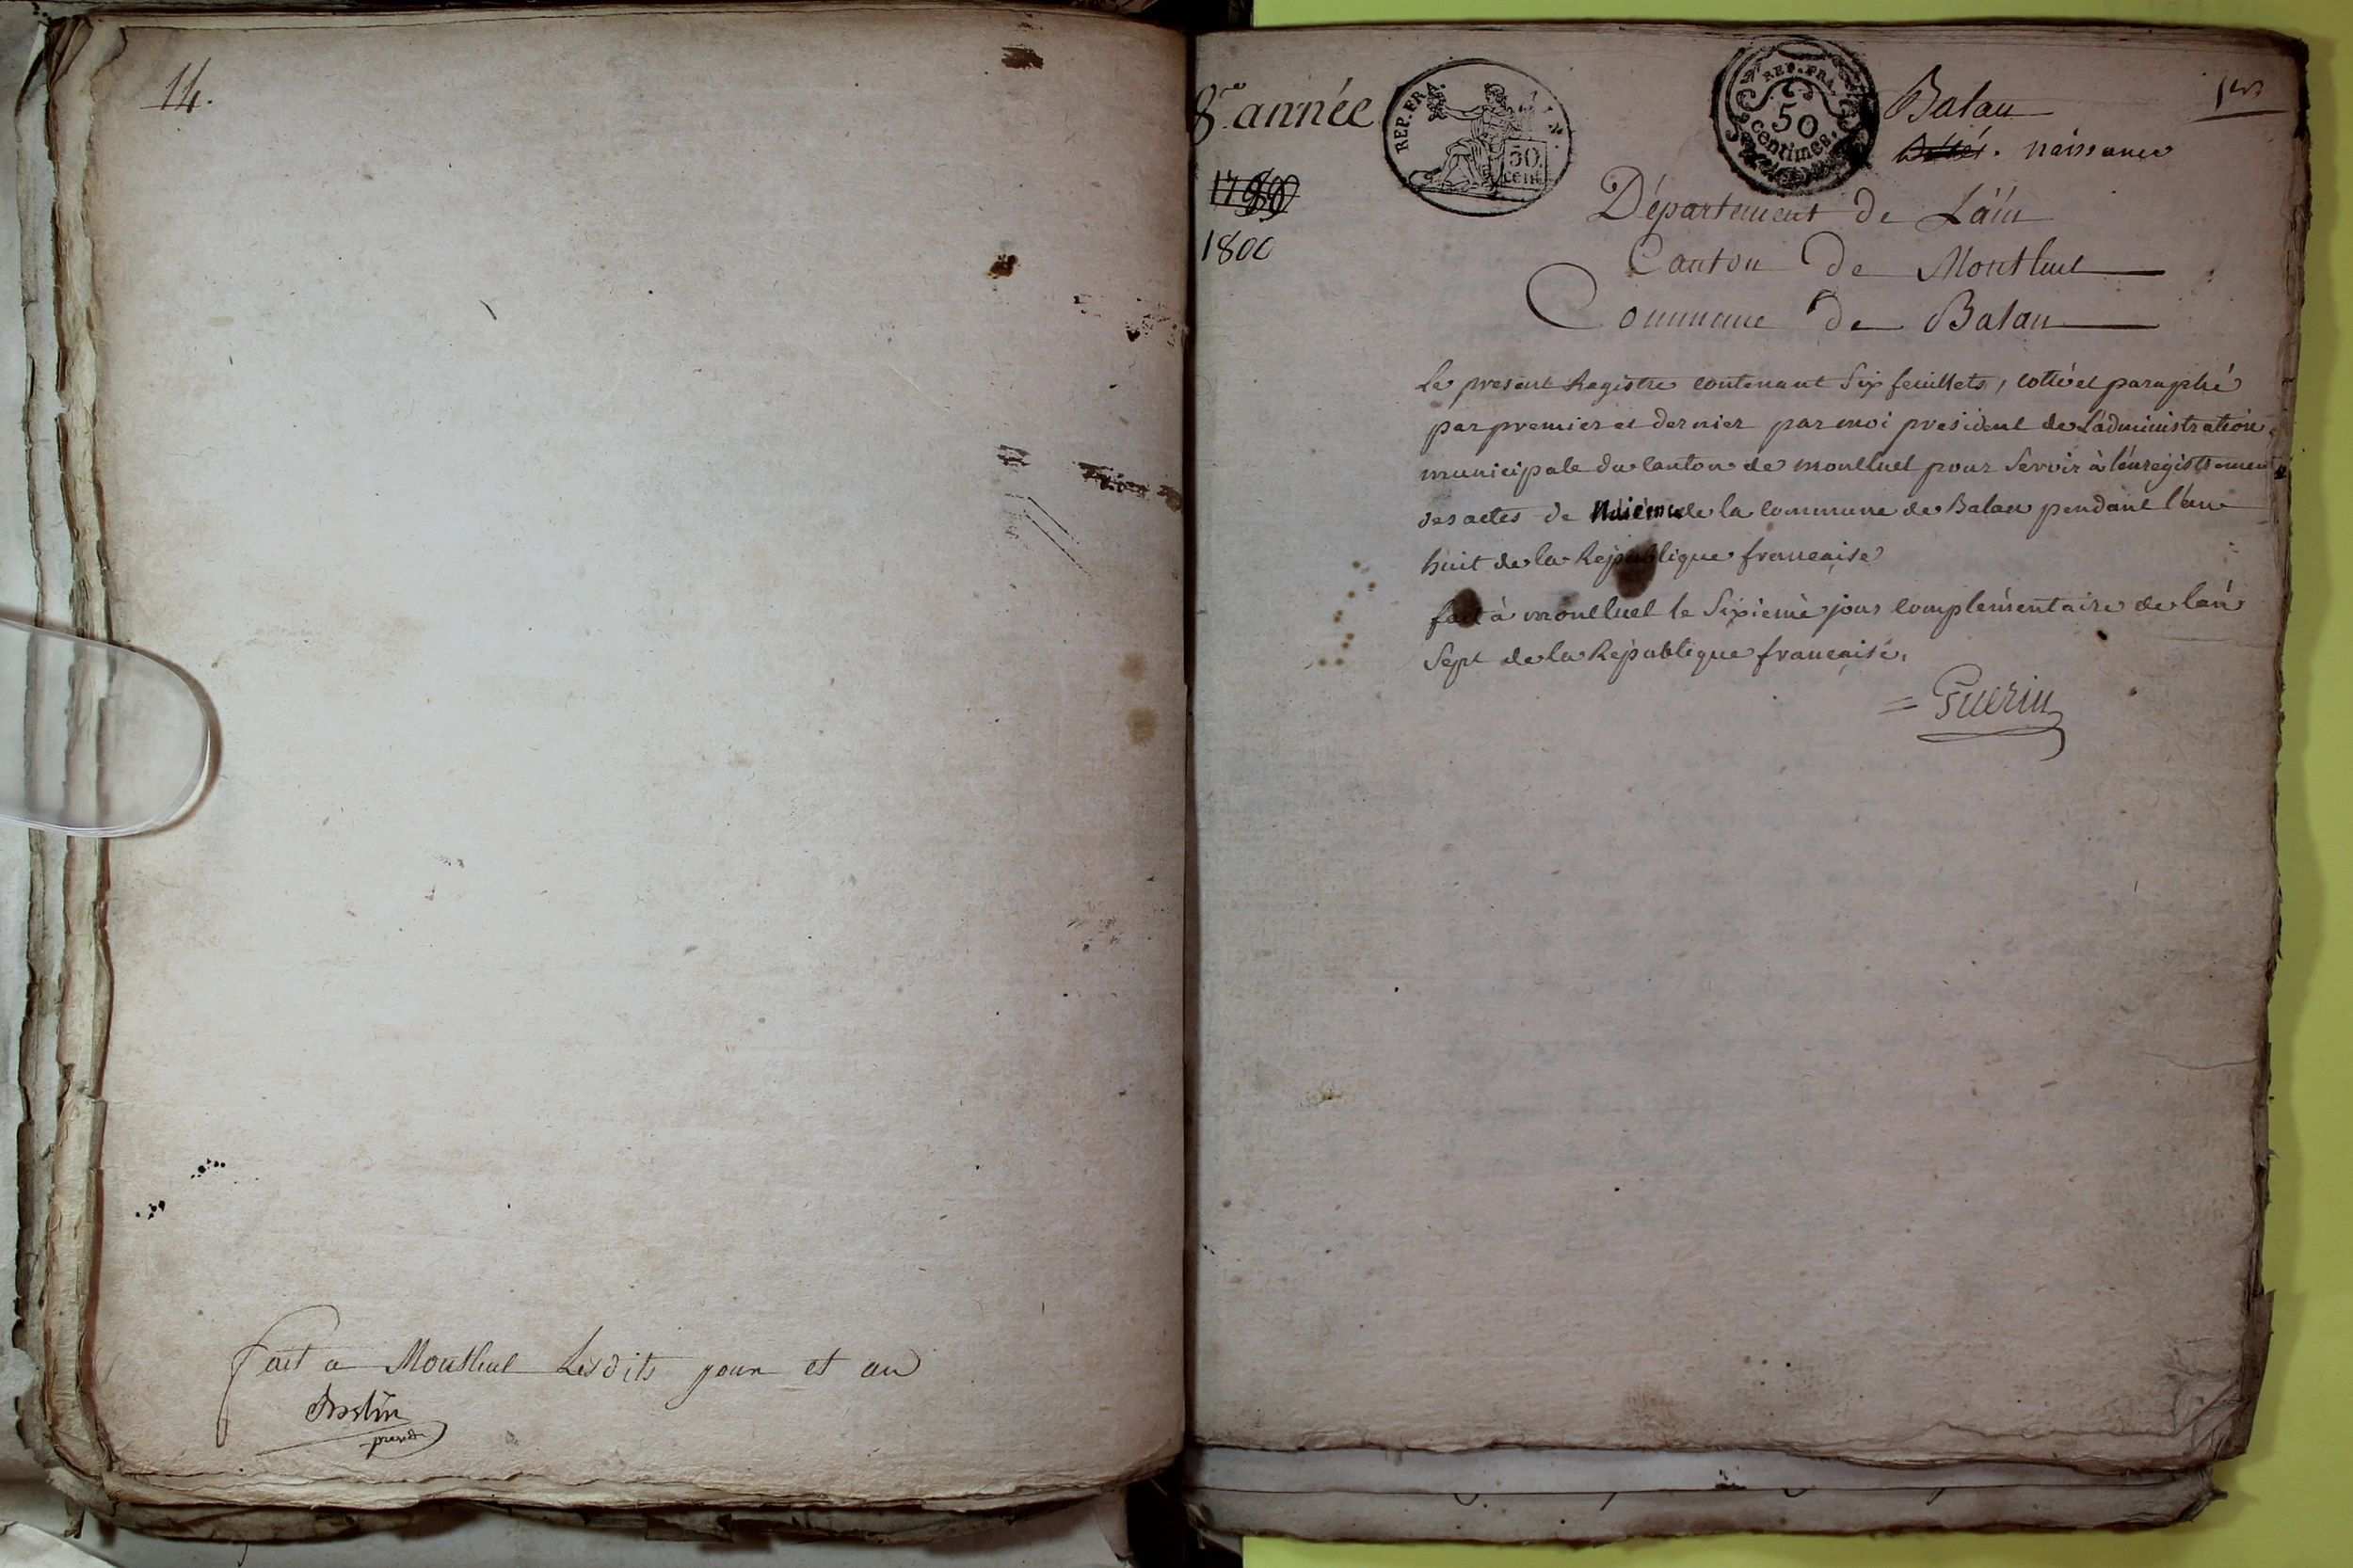 14.
fait a Montluel Lesdits jour et an
presdt
8e année
1800
REP. FRA.
50
cent
REP. FRA.
50
centimes.
Balan
naissance
1er
Département de L'ain
Canton de Montluel
Commune de Balan
Le present Registre contenant Six feuillets, cotté et paraphé
par premier et dernier par moi président de L'administration
municipale du Canton de montluel pour Servir à l'enregistrement
des actes de de la Commune de Balan pendant l'an
huit de la République française
fait à montluel le Sixieme jour complémentaire de l'an
Sept de la République française.
= Guerin